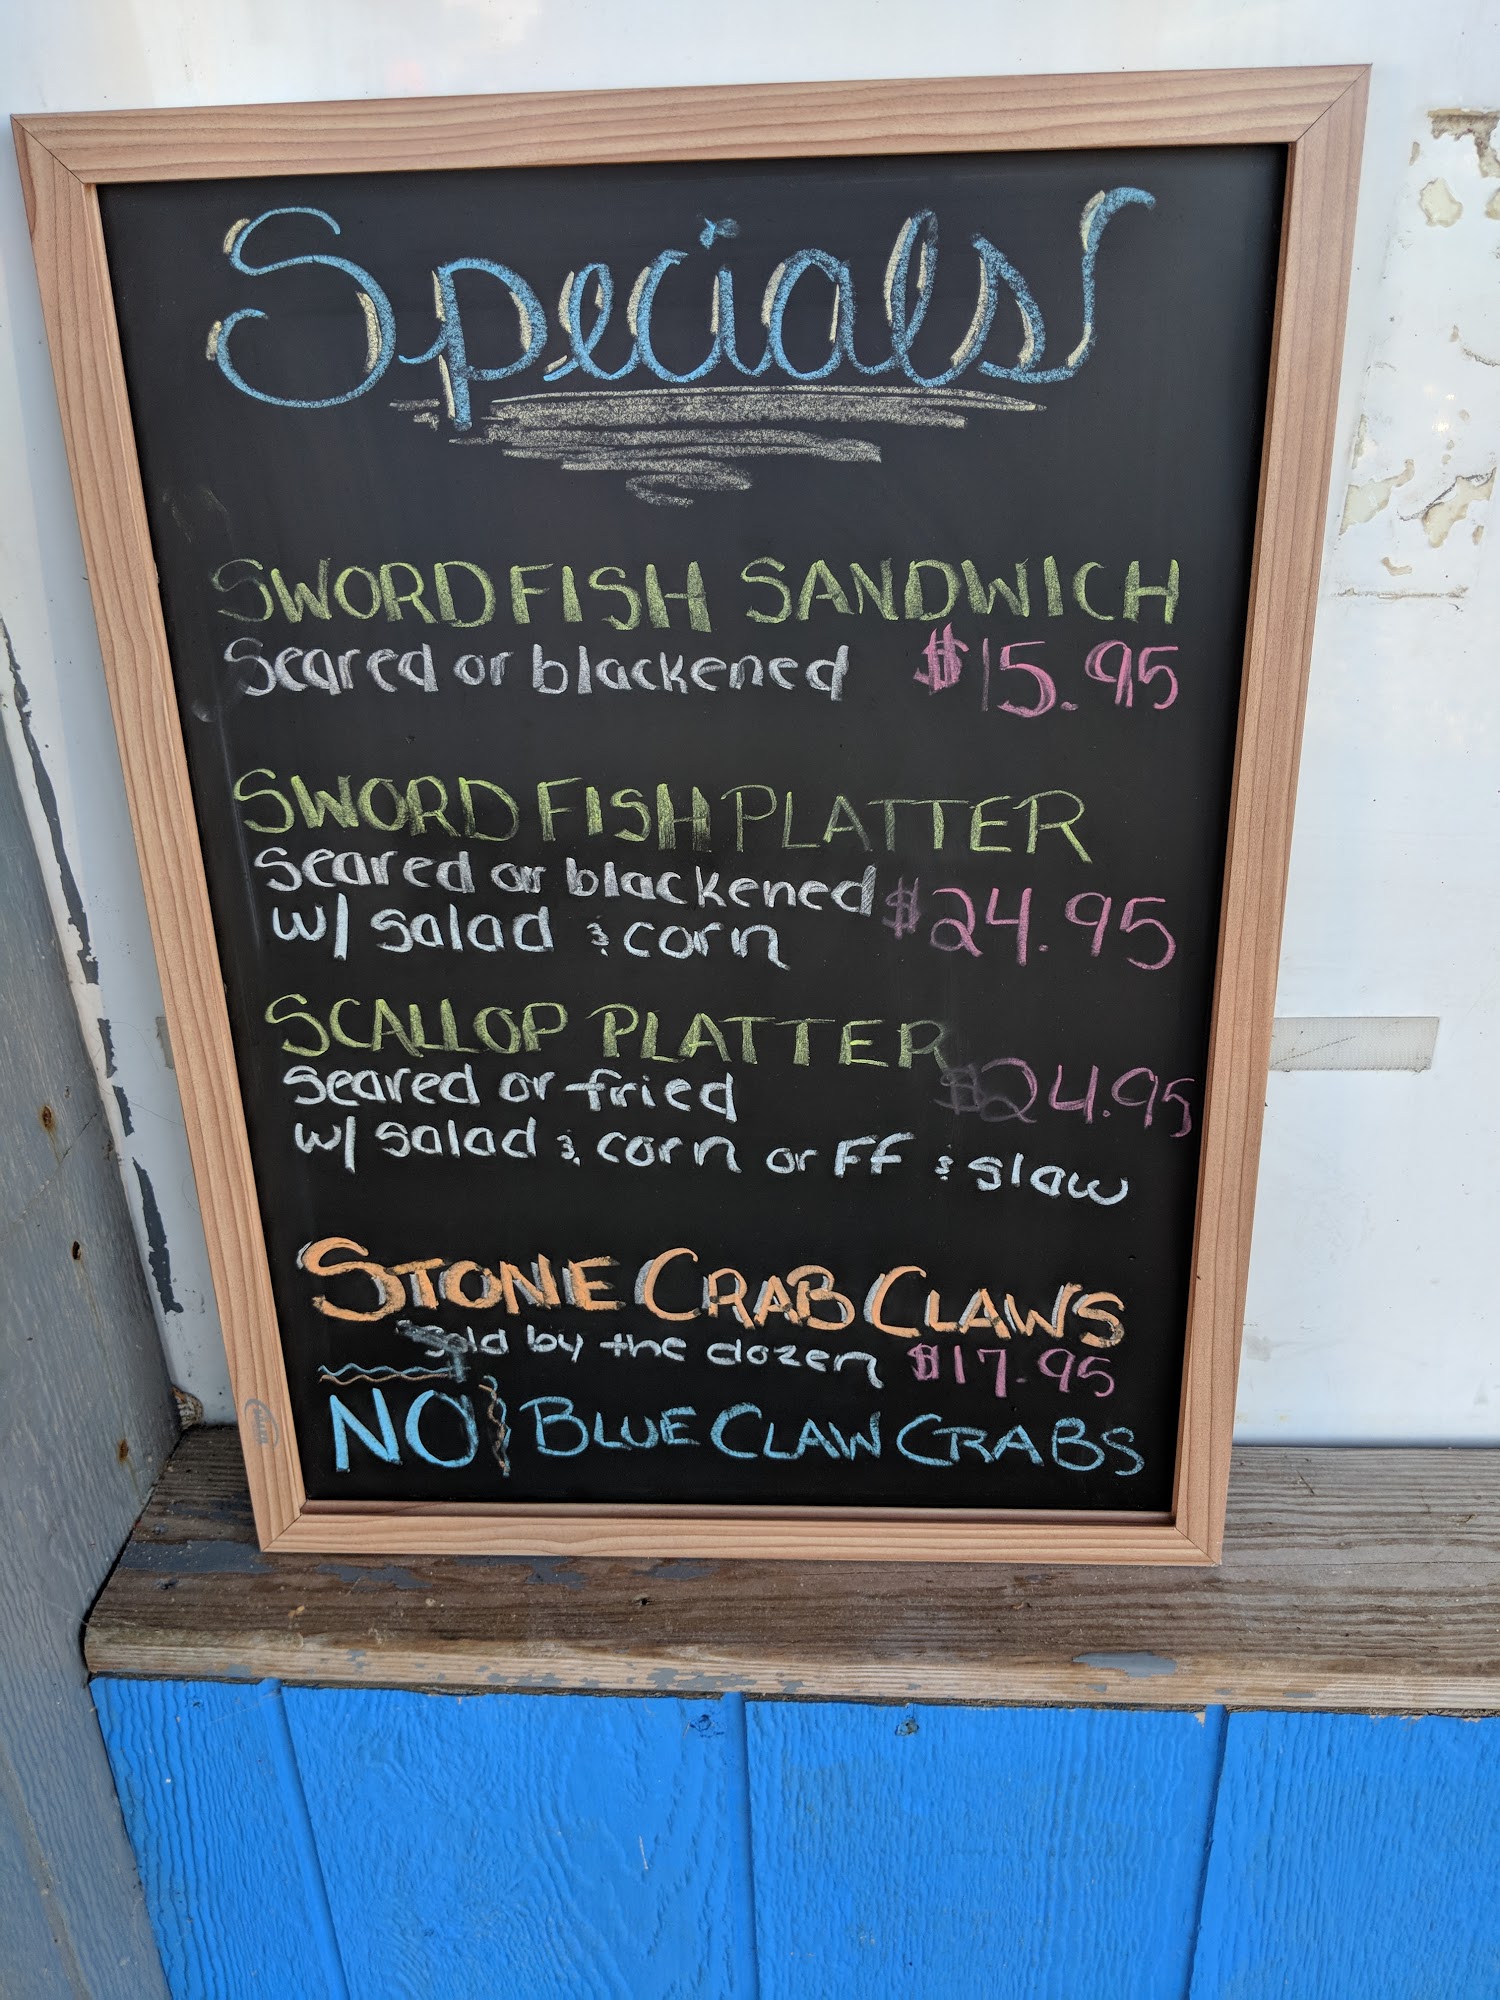 Specials
SWORDFISH SANDWICH
Seared or blackened $15.95
SWORDFISH PLATTER
Seared or blackened $24.95
w/ salad & corn
SCALLOP PLATTER
Seared or fried $24.95
w/ salad & corn or FF & slaw
STONE CRAB CLAWS
Sold by the dozen $17.95
NO BLUE CLAW CRABS